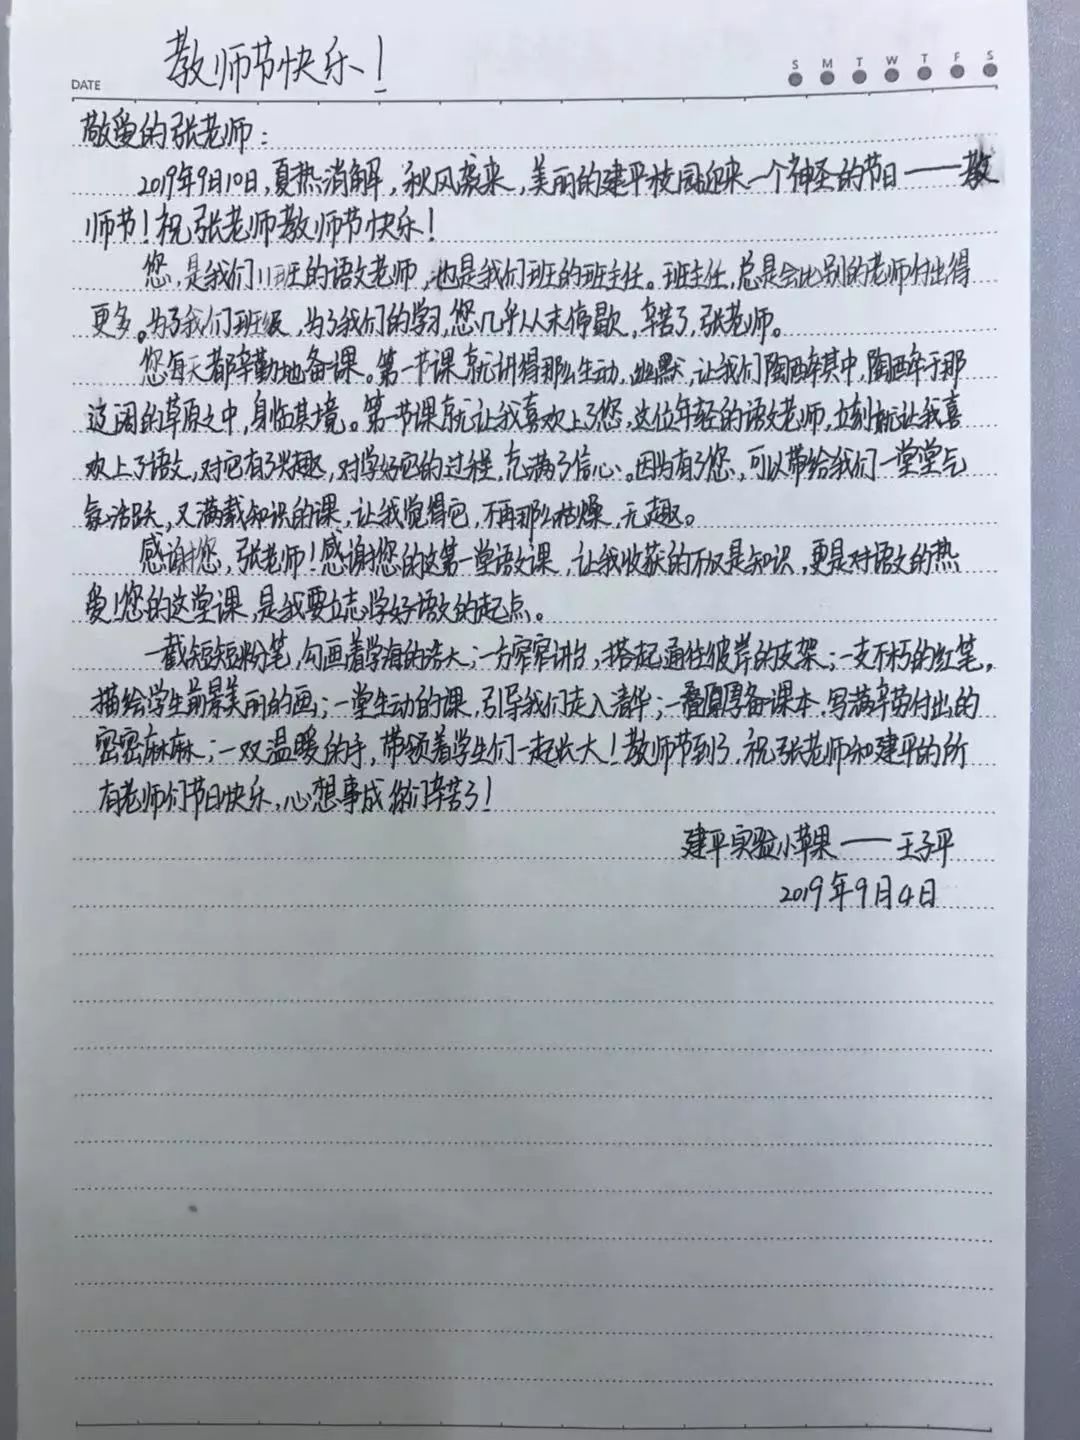 教师节快乐！
DATE
S M T W T F S
敬爱的张老师：
2019年9月10日，夏热消解，秋风袭来，美丽的建平校园迎来一个神圣的节日——教
师节！祝张老师教师节快乐！
您，是我们11班的语文老师，也是我们班的班主任。班主任，总是会比别的老师付出得
更多。为了我们班级，为了我们的学习，您几乎从未停歇，辛苦了，张老师。
您每天都辛勤地备课。第一节课就讲得那么生动，幽默，让我们陶醉其中，陶醉于那
辽阔的草原之中，身临其境。第一节课就让我喜欢上了您，这位年轻的语文老师，立刻就让我喜
欢上了语文，对它有了兴趣，对学好它的过程，充满了信心。因为有了您，可以带给我们一堂堂气
氛活跃，又满载知识的课，让我觉得它，不再那么枯燥，无趣。
感谢您，张老师！感谢您的这第一堂语文课，让我收获的不仅是知识，更是对语文的热
爱！您的这堂课，是我要立志学好语文的起点。
一截短短粉笔，勾画着学海的浩大；一方窄窄讲台，搭起通往彼岸的支架；一支不朽的红笔，
描绘学生前景美丽的画；一堂生动的课，引导我们走入清华；一叠厚厚备课本，写满辛劳付出的
密密麻麻；一双温暖的手，带领着学生们一起长大！教师节到了，祝张老师和建平的所
有老师们节日快乐，心想事成，你们辛苦了！
建平实验小苹果——王子平
2019年9月4日